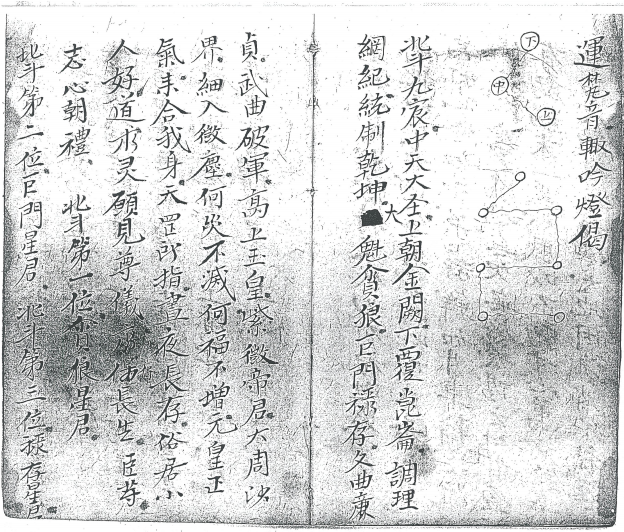 運梵音輙吟燈偈
下
中
上
北斗九宸中天大圣上朝金闕下覆崑崙調理
網紀統制乾坤大魁貪狼巨門祿存文曲廉
貞武曲破軍高上玉皇紫微帝君大周沙
界細入微塵何災不滅何福不增元皇正
氣耒合我身天罡所指晝夜長存俗居小
人好道求灵願見尊儀長生臣等
志心朝禮 北斗第一位貪狼星君
北斗第二位巨門星君 北斗第三位祿存星君